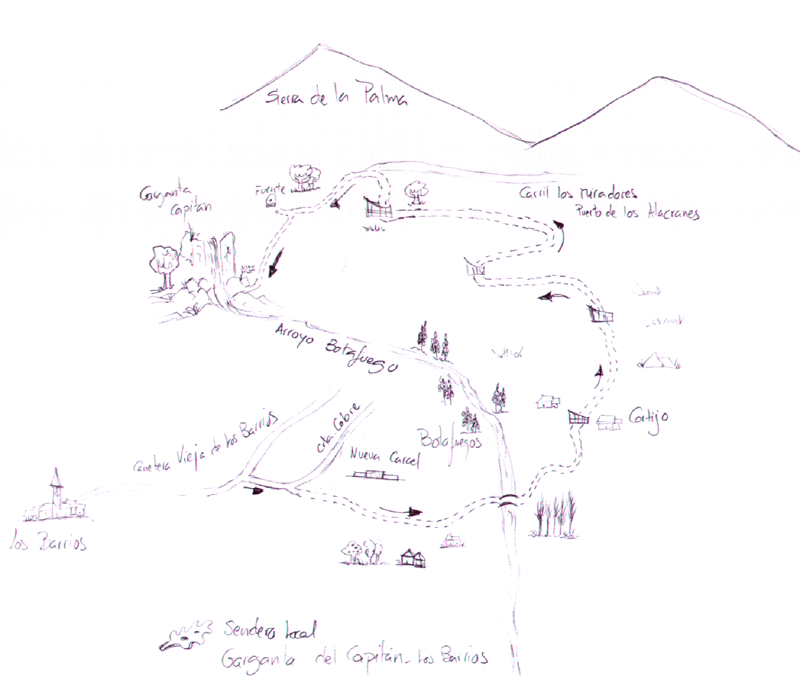 Sierra de la Palma
Fuente
Garganta
Capitán
Carril los miradores
Puerto de los Alacranes
Arroyo Botafuego
Carretera Vieja de los Barrios
Cobre
Nueva Carcel
Botafuegos
Cortijo
Los Barrios
Sendero Local
Garganta del Capitán - Los Barrios